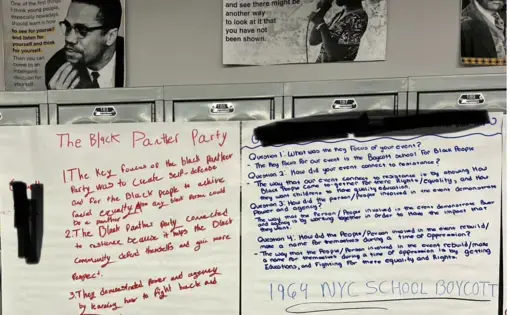 One of the first
things I think young people,
especially nowadays,
should learn is how
to see for yourself
and listen for
yourself and think
for yourself.
Then you can
come to an
intelligent
decision for
yourself.
and see there might be
another way
to look at it that
you have not
been shown.
The Black Panther Party
1. The key focus of the black panther
Party was to create self-defense
and for the Black people to achieve
racial equality. Also any black person could
be a panther
2. The Black Panther Party connected
to resistance because it helps the Black
community defend themselves and gain more
Respect.
3. They demonstrated Power and agency
by learning how to fight back and
Question 1: What was the key Focus of your event?
The Key Focus for our event is the Boycott School For Black People
Question 2: How did your event connect to resistance?
- The way that our event connects to resistance is by showing How
Black People came together for there Rights/equality, and How
they want childrens to Have quality education.
Question 3: How did the person/People involved in the event demonstrate
Power and agency?
- The way that the Person/People involved in the event demonstrate Power
and agency by working together in order to Have the impact that
they want.
Question 4: How did the People/Person involved in the event rebuild/
make a name for themselves during a time of oppression?
- The way that the People/Person involved in the event rebuild/make
a name for themselves during a time of oppression is by getting
Educations, and Fighting For there equality and Rights.
1964 NYC SCHOOL BOYCOTT